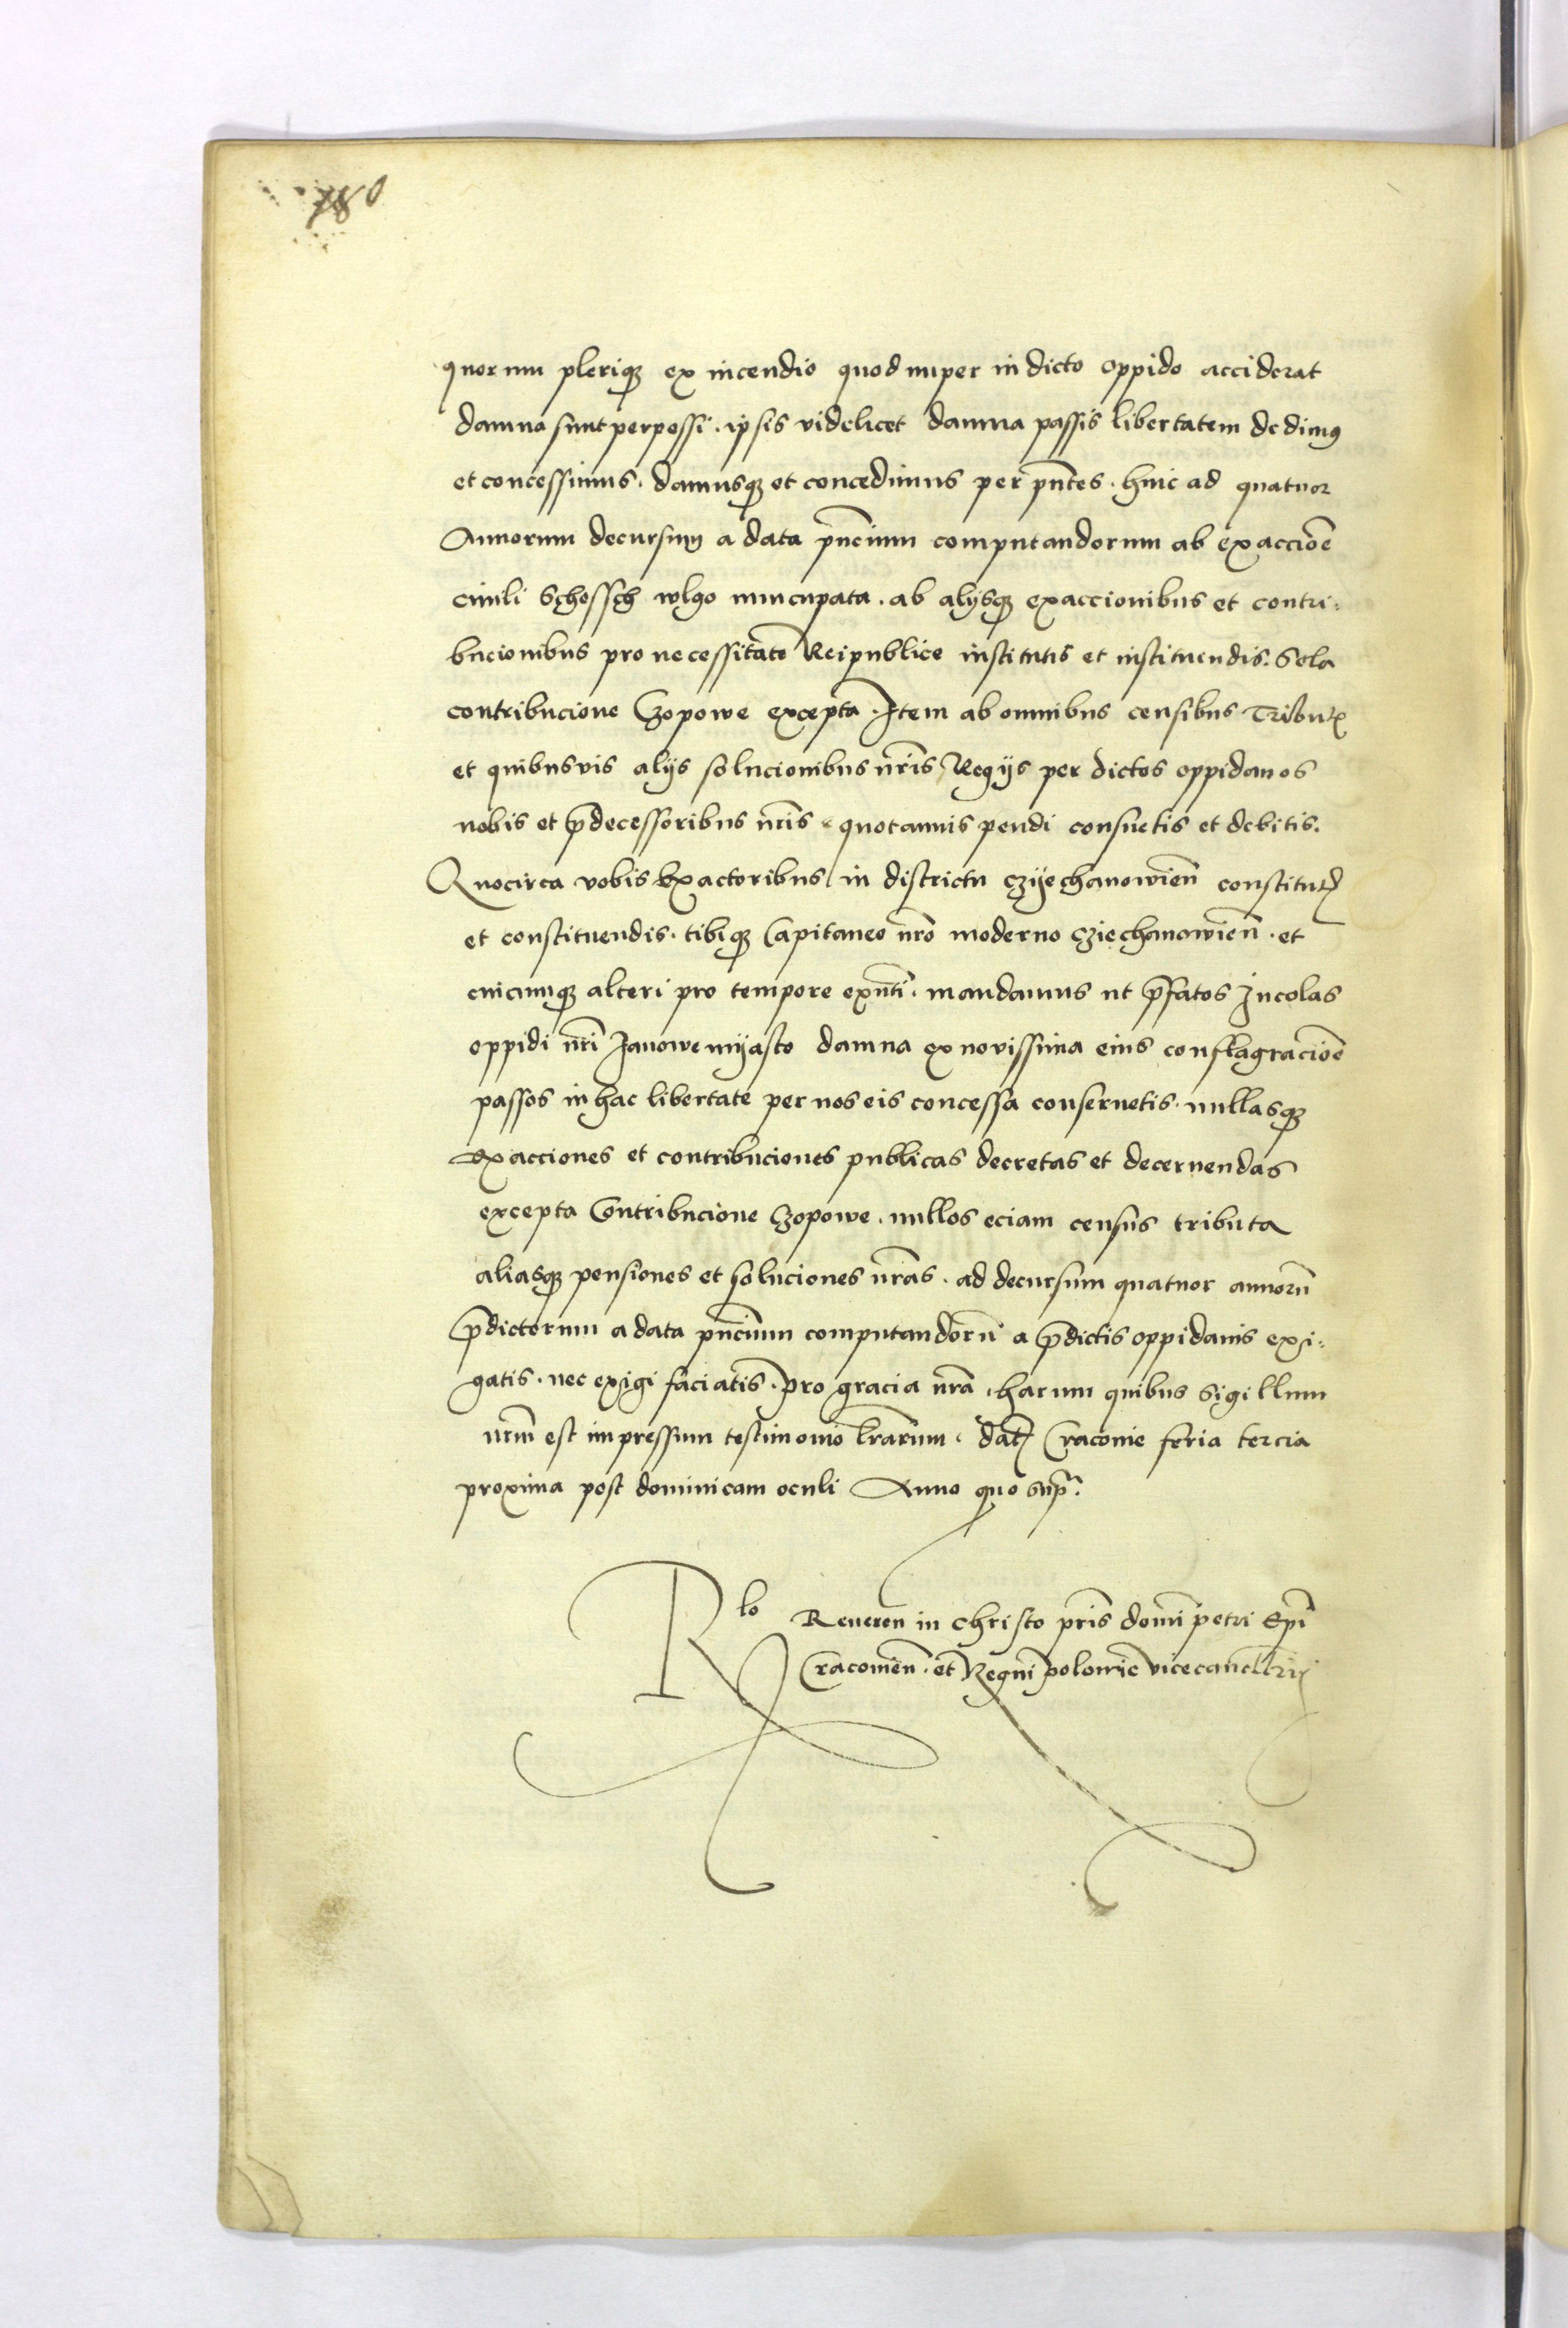 780
quorum pleriq₃ ex incendio quod nuper in dicto oppido acciderat
damna sunt perpessi . ipsis videlicet damna passis libertatem dedimꝰ
et concessimus . damusq₃ et concedimus per pn̄tes . hinc ad quatuor
Annorum decursum a data pn̄cium computandorum ab exaccione
ciuili Schossch wlgo nuncupata . ab alijsq₃ exaccionibus et contri=
bucionibus pro necessitate Reipublice institutis et instituendis. Sola
contribucione Czopowe excepta . Item ab omnibus censibus Tribut̄
et quibusvis alijs solucionibus nr̄is Regijs per dictos oppidanos
nobis et p̄decessoribus nr̄is quotannis pendi consuetis et debitis.
Quocirca vobis Exactoribus in districtu Czyechanowien̄ constitut̄
et constituendis . tibiq₃ Capitaneo nr̄o moderno Cziechanowien̄ . et
cuicumq₃ alteri pro tempore exn̄ti . mandamus ut p̄fatos Incolas
oppidi nr̄i Janowemyasto damna ex novissima eius conflagracione
passos in hac libertate per nos eis concessa conseruetis . nullasq₃
exacciones et contribuciones publicas decretas et decernendas
excepta Contribucione Czopowe . nullos eciam census tributa
aliasq₃ pensiones et soluciones nr̄as . ad decursum quatuor annorū
p̄dictorum a data pn̄cium computandorū a p̄dictis oppidanis exi=
gatis . nec exigi faciatis . pro gracia nr̄a . harum quibus Sigillum
nr̄m est impressum testimonio lr̄arum . dat̄ Cracouie feria tercia
proxima post dominicam oculi Anno quo sup̄.
Rlo Reueren in Christo pr̄is domī petri Ep̄i
Cracouien̄ . et Regni polonie vicecancellarij